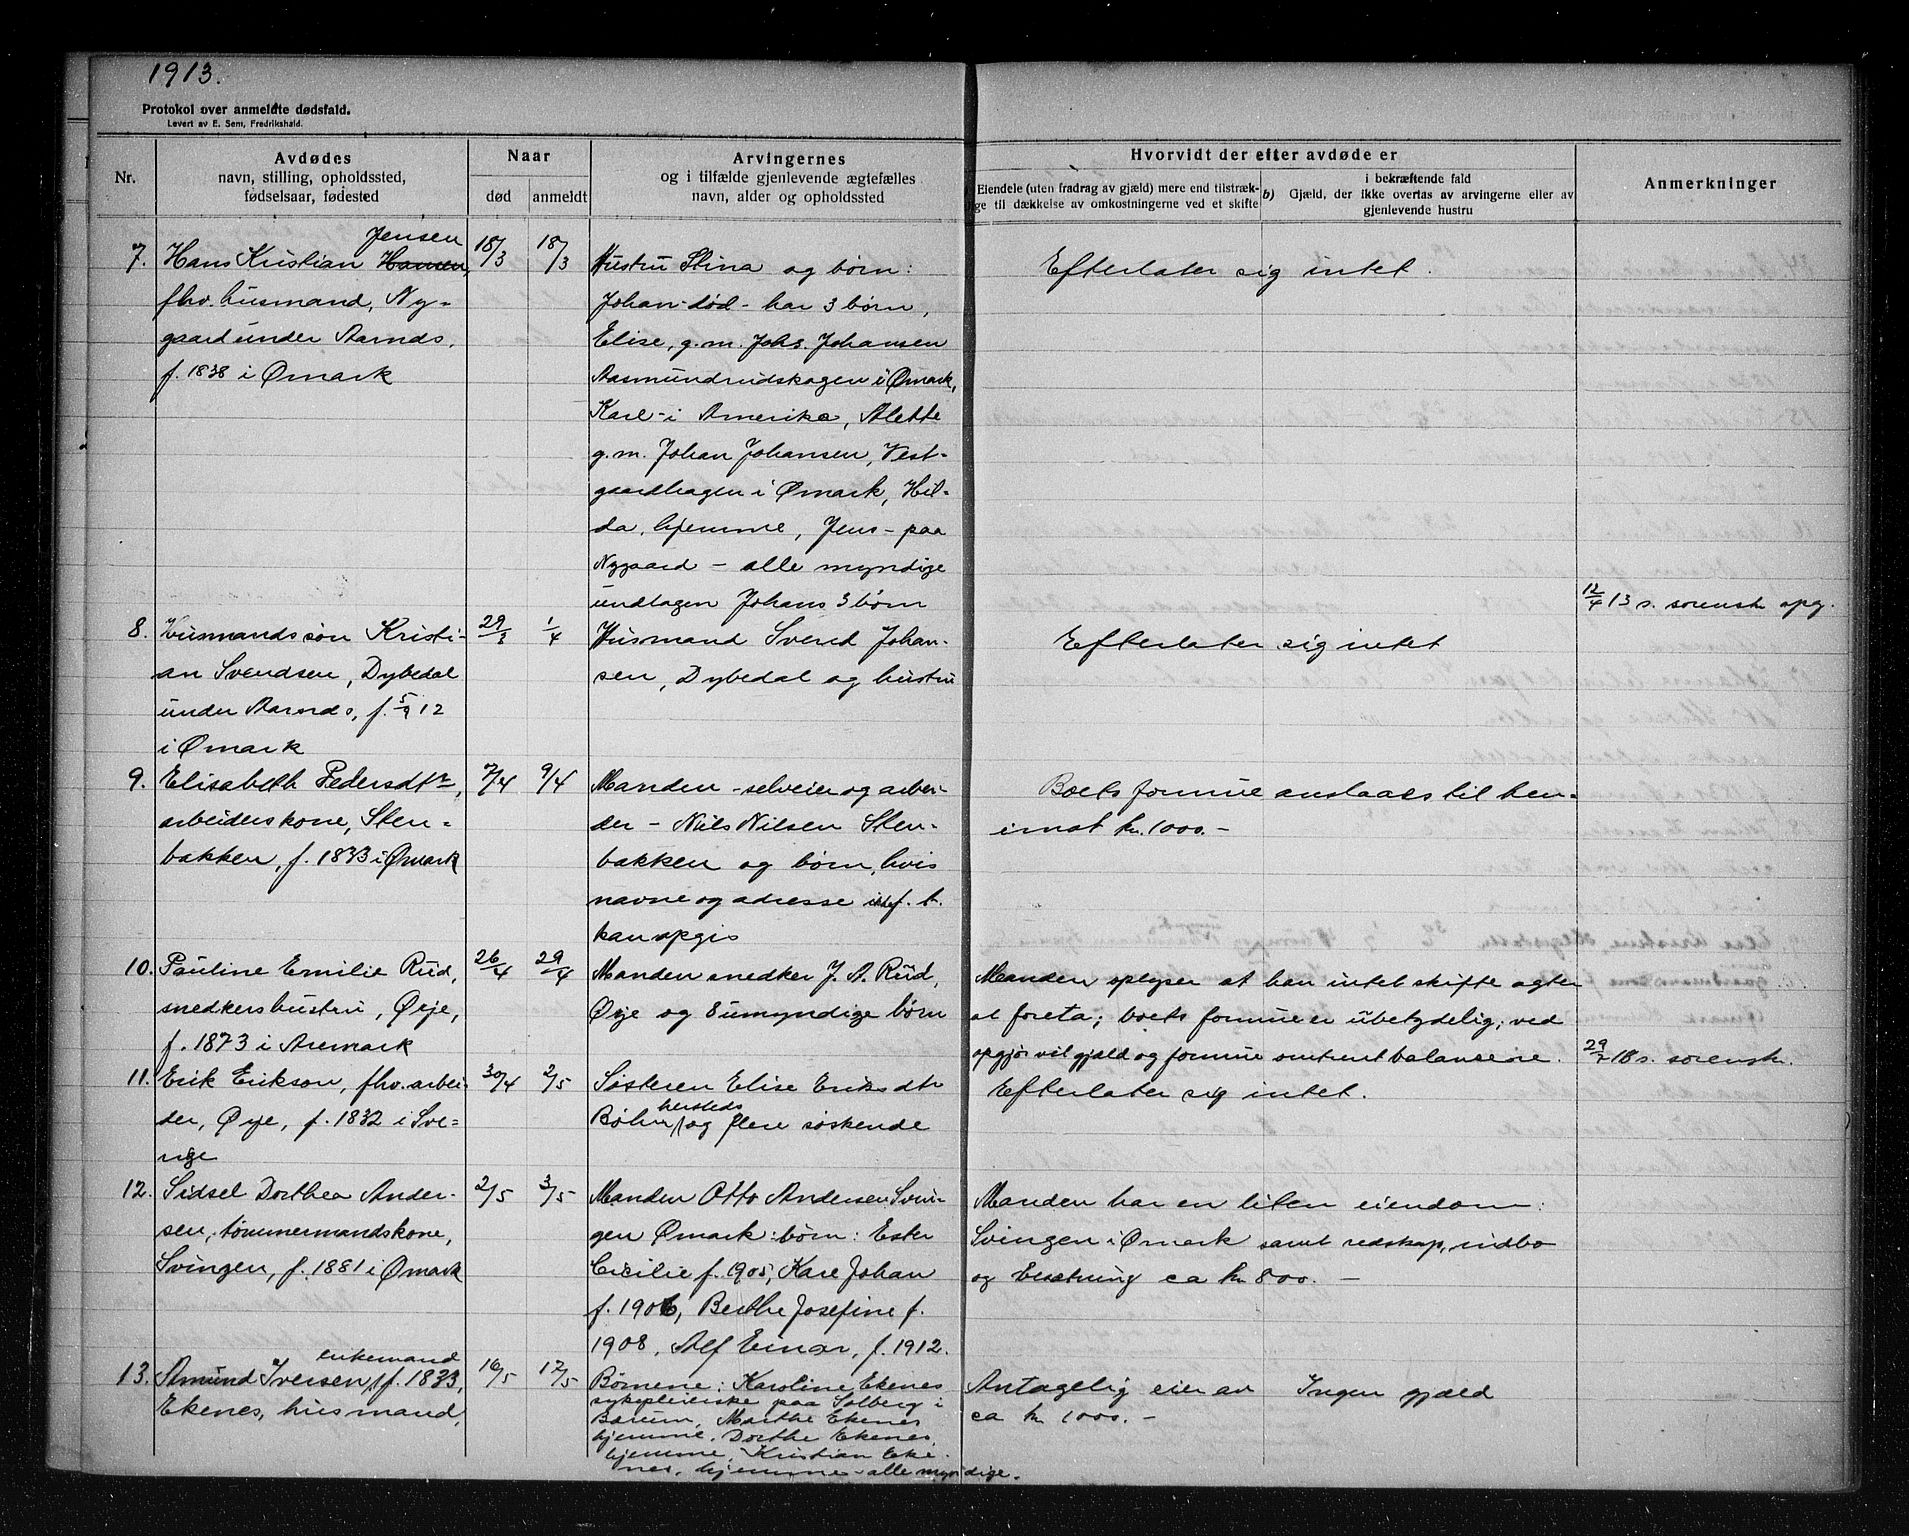 1913.
Protokol over anmeldte dødsfald.
Levert av E. Sem, Fredrikshald.
Nr.
Avdødes
navn, stilling, opholdssted,
fødselsaar, fødested
Naar
død
anmeldt
Arvingernes
og i tilfælde gjenlevende ægtefælles
navn, alder og opholdssted
Hvorvidt der efter avdøde er
Eiendele (uten fradrag av gjæld) mere end tilstræk-
ge til dækkelse av omkostningerne ved et skifte
i bekræftende fald
b) Gjæld, der ikke overtas av arvingerne eller av
gjenlevende hustru
Anmerkninger
Jensen
7. Hans Kristian Hansen,
fhv. husmand, Ny-
gaard under Aarnds,
f. 1838 i Ømark
18/3
18/3
Hustru Stina og børn:
Johan - død - har 3 børn,
Elise, g.m. Johs. Johansen
Aasmundrudskogen i Ømark,
Karl - i Amerika, Alette
g.m. Johan Johansen, Vest-
gaardhagen i Ømark, Hil-
da, hjemme, Jens - paa
Nygaard - alle myndige
undtagen Johans 3 børn
Efterlater sig intet.
12/4 13 s. sorensk. opg.
8. Husmandssøn Kristi-
an Svendsen, Dybedal
under Aarnds, f. 5/9 12
i Ømark
29/3
1/4
Husmand Svend Johan-
sen, Dybedal og hustru
Efterlater sig intet
9. Elisabeth Pedersdtr,
arbeiderskone, Sten-
bakken, f. 1833 i Ømark
7/4
9/4
Manden - selveier og arbei-
der - Nils Nilsen Sten-
bakken og børn, hvis
navne og adresse ikke f. t.
kan opgis
Boets formue anslaaes til hen-
imot kr. 1000.-
10. Pauline Emilie Rud,
snedkershustru, Ørje,
f. 1873 i Aremark
26/4
29/4
Manden snedker J. A. Rud,
Ørje og 8 umyndige børn
Manden oplyser at han intet skifte agter
at foreta; boets formue er ubetydelig; ved
opgjør vil gjæld og formue omtrent balansere.
29/7 18 s. sorensk.
11. Erik Erikson, fhv. arbei-
der, Ørje, f. 1832 i Sve-
rige
30/4
2/5
Søsteren Elise Eriksdtr
hersteds
Bøhn og flere søskende
Efterlater sig intet.
12. Sidsel Dorthea Ander-
sen, tømmermandskone,
Svingen, f. 1881 i Ømark
2/5
3/5
Manden Otto Andersen Svin-
gen Ømark: børn: Ester
Cicilie f. 1905, Kare Johan
f. 1906, Berthe Josefine f.
1908, Alf Einar, f. 1912.
Manden har en liten eiendom:
Svingen i Ømark samt redskap, indbo
og besætning ca kr 800. -
enkemand
13. Amund Iversen, f. 1833,
Ekenes, husmand,
16/5
17/5
Børnene: Karoline Ekenes
sykepleierske paa Solberg i
Bærum, Marthe Ekenes
hjemme, Dorthe Ekenes
hjemme, Kristian Eke-
nes, hjemme - alle myndige.
Antagelig eier av
ca kr 1000.-
Ingen gjæld